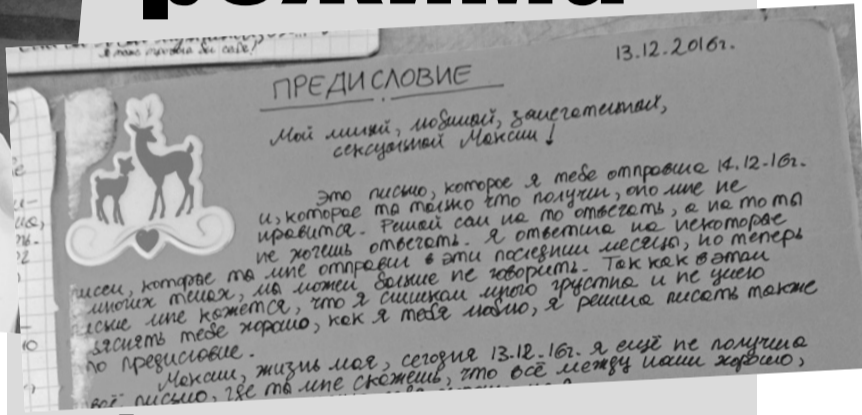 режима
я тоже
себе?
13.12.2016г.
ПРЕДИСЛОВИЕ
Мой милый, любимый, замечательный,
сексуальной Максим!
Это письмо, которое я тебе отправила 14.12-16г.
и, которое ты только что получил, оно мне не
нравится. Решай сам на то отвечать, а на то ты
не хочешь отвечать. Я ответила на некоторые
писем, которые ты мне отправил в эти последнии месяцы, но теперь
многих темах, мы можем больше не говорить. Так как в этом
письме мне кажется, что я слишком много грустна и не умею
яснять тебе хорошо, как я тебя люблю, я решила писать также
по предисловие.
Максим, жизнь моя, сегодня 13.12.-16г. я ещё не получила
письмо, где ты мне скажешь, что всё между нами хорошо,